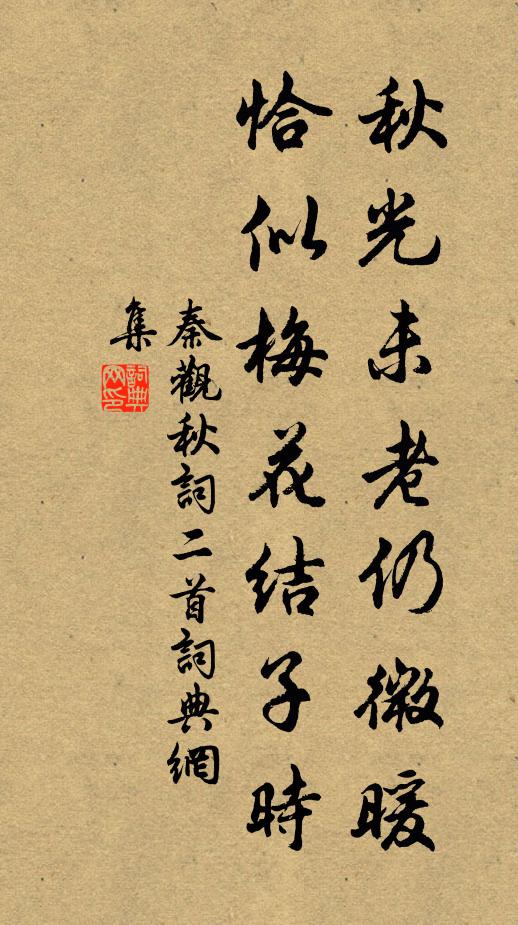 秋光未老仍微暖
恰似梅花结子時
秦觀秋詞二首詞典網
集
詞典
网印